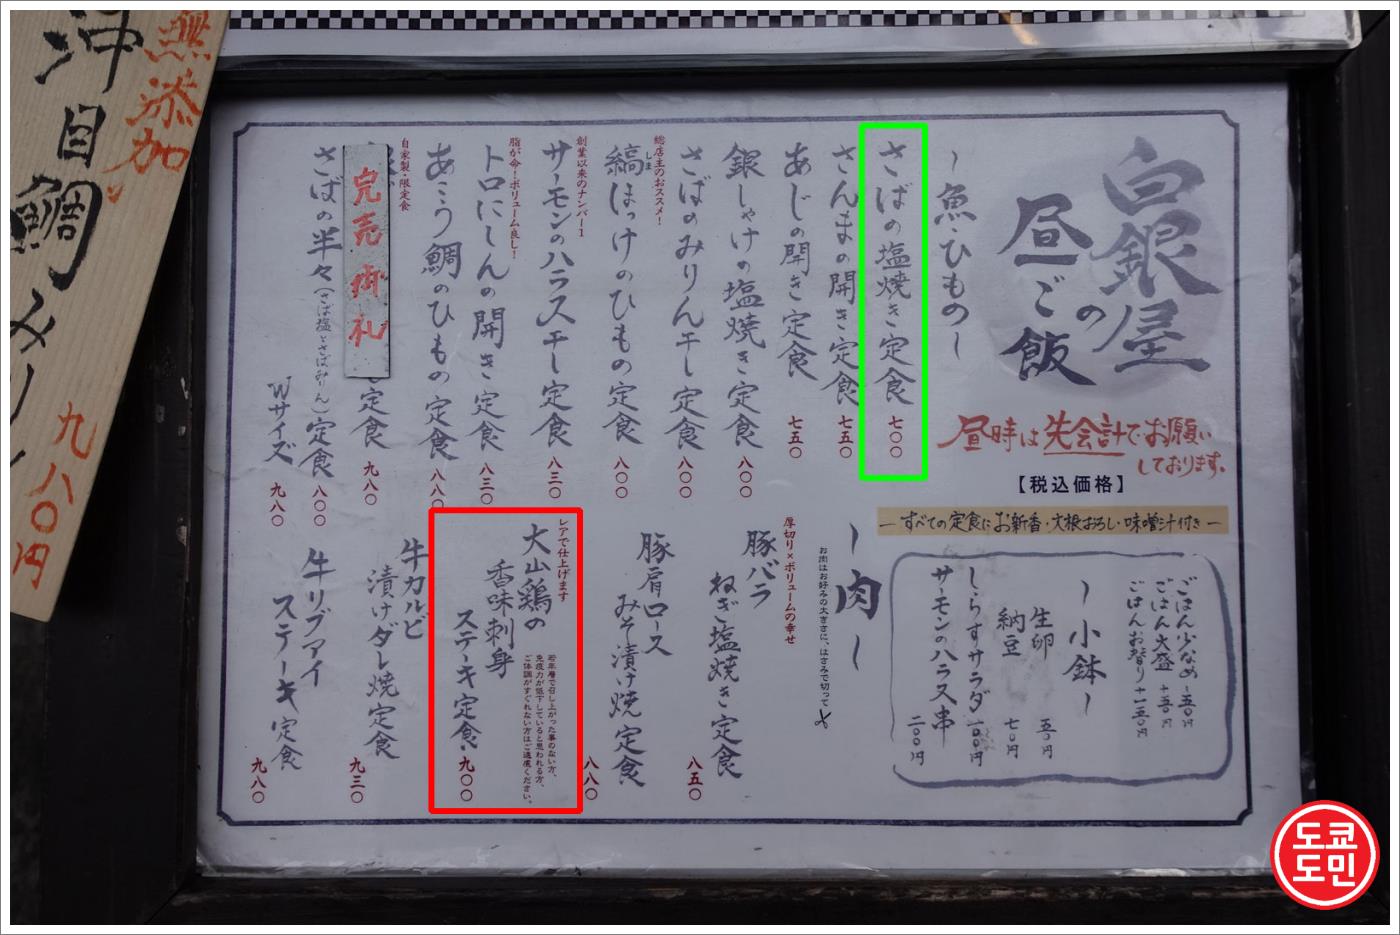 無添加
沖目鯛みりん
九八〇円
白銀屋
昼の
ご飯
昼時は先会計でお願い
しております。
【税込価格】
―すべての定食にお新香・大根おろし・味噌汁付き―
～魚・ひもの～
さばの塩焼き定食 七〇〇
さんまの開き定食 七五〇
あじの開き定食 七五〇
銀しゃけの塩焼き定食 八〇〇
さばのみりん干し定食 八〇〇
総店主のおススメ！
縞ほっけのひもの定食 八〇〇
しま
創業以来のナンバー1
サーモンのハラス干し定食 八三〇
脂が命！ボリューム良し！
トロにしんの開き定食 八三〇
あこう鯛のひもの定食 八八〇
自家製・限定食
完売御礼
定食 九八〇
さばの半々（さば塩とさばみりん）定食 八〇〇
Wサイズ 九八〇
～肉～
お肉はお好みの大きさに、はさみで切って
厚切り×ボリュームの幸せ
豚バラ
ねぎ塩焼き定食 八五〇
豚肩ロース
みそ漬け焼定食 八八〇
レアで仕上げます
大山鶏の
香味刺身
ステーキ定食 九〇〇
若年層で召し上がった事のない方、
免疫力が低下していると思われる方、
ご体調がすぐれない方はご遠慮ください。
牛カルビ
漬けダレ焼定食 九三〇
牛リブアイ
ステーキ定食 九八〇
ごはん少なめ －五〇円
ごはん大盛 ＋五〇円
ごはんお替り ＋一五〇円
～小鉢～
生卵 五〇円
納豆 七〇円
しらすサラダ 一〇〇円
サーモンのハラス串 二〇〇円
도쿄
도민